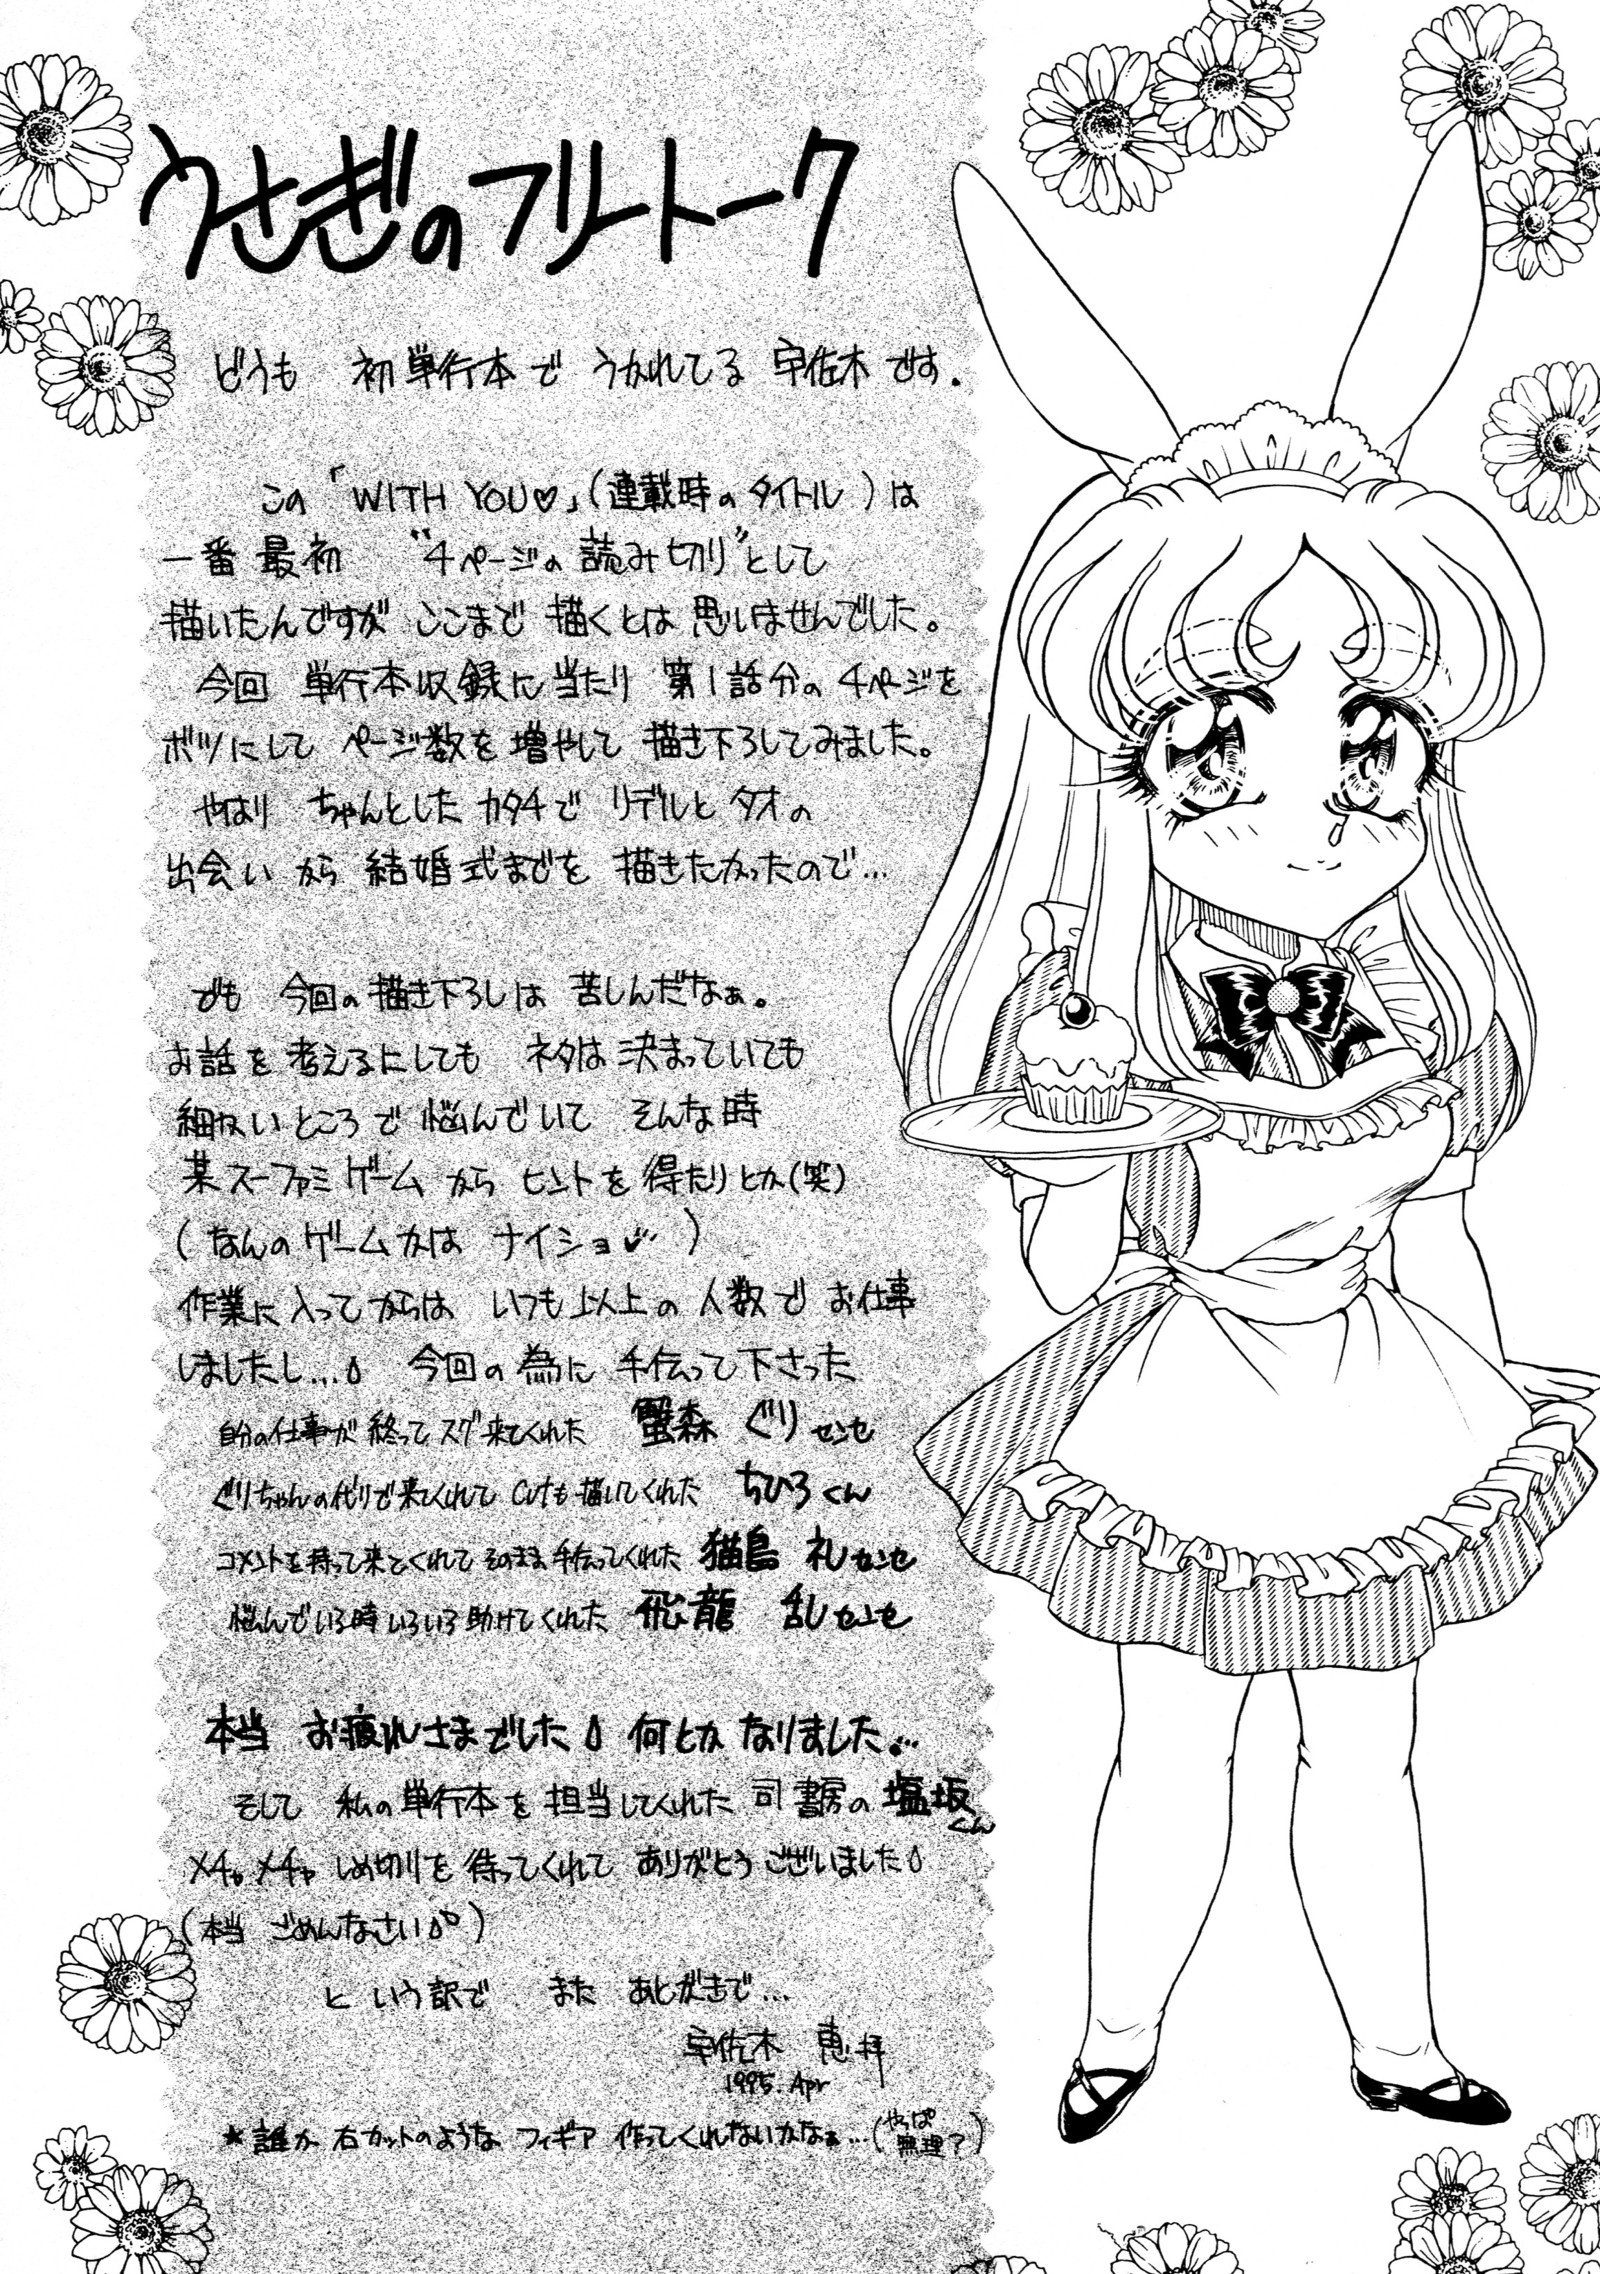 うさぎのフリートーク
どうも 初単行本で うかれてる 宇佐木です.
この「WITH YOU♡」(連載時のタイトル)は
一番最初 "4ページの読み切り"として
描いたんですが ここまで 描くとは 思いませんでした。
今回 単行本収録に当たり 第1話分の 4ページを
ボツにして ページ数を増やして 描き下ろしてみました。
やはり ちゃんとした カタチで リデルと タオの
出会い から 結婚式までを 描きたかったので…
でも 今回の描き下ろしは 苦しんだなぁ。
お話を 考えるにしても ネタは決まっていても
細かいところで 悩んでいて そんな時
某スーファミゲーム から ヒントを 得たりとか(笑)
(なんのゲームかは ナイショ)
作業に入ってからは いつも以上の 人数で お仕事
しましたし… 今回の為に 手伝って下さった
自分の仕事が 終って スグ来てくれた 蟹森 ぐり センセ
ぐりちゃんの代りで来てくれて cutも描いてくれた ちひろくん
コメントを持って来てくれて そのまま 手伝ってくれた 猫島 礼センセ
悩んでいる時いろいろ助けてくれた 飛龍 乱センセ
本当 お疲れさまでした 何とか なりました…
そして 私の単行本を 担当してくれた 司書房の 塩坂くん
メチャメチャ しめ切りを 待ってくれて ありがとうございました
(本当 ごめんなさい)
という訳で また あとがきで…
宇佐木 恵 拝
1995. Apr
*誰か 右カットのような フィギア 作ってくれないかなぁ…(やっぱ無理?)